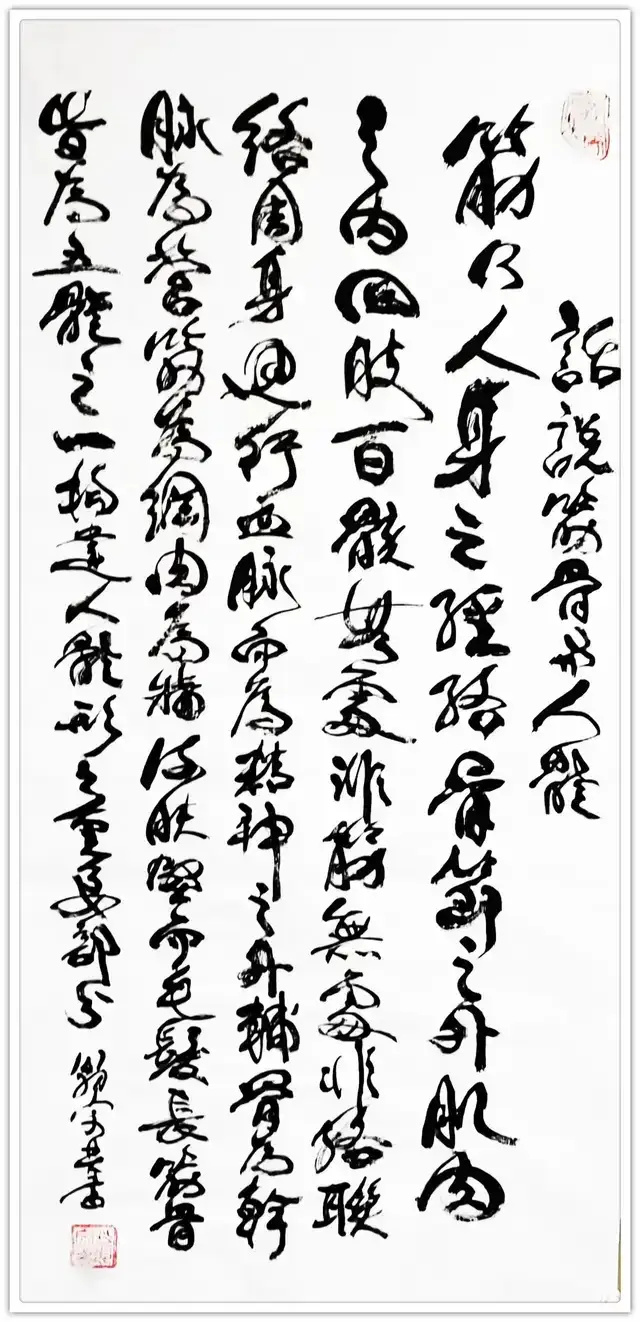 話說筋骨与人體
筋乃人身之經絡骨節之外肌肉
之內四肢百骸無處非筋無處非絡聯
絡周身通行血脈而為精神之外輔骨為幹
脉為營筋為綱肉為墻皮膚堅而毛髮長筋骨
皆為五體之一構建人體形之重要部分 書